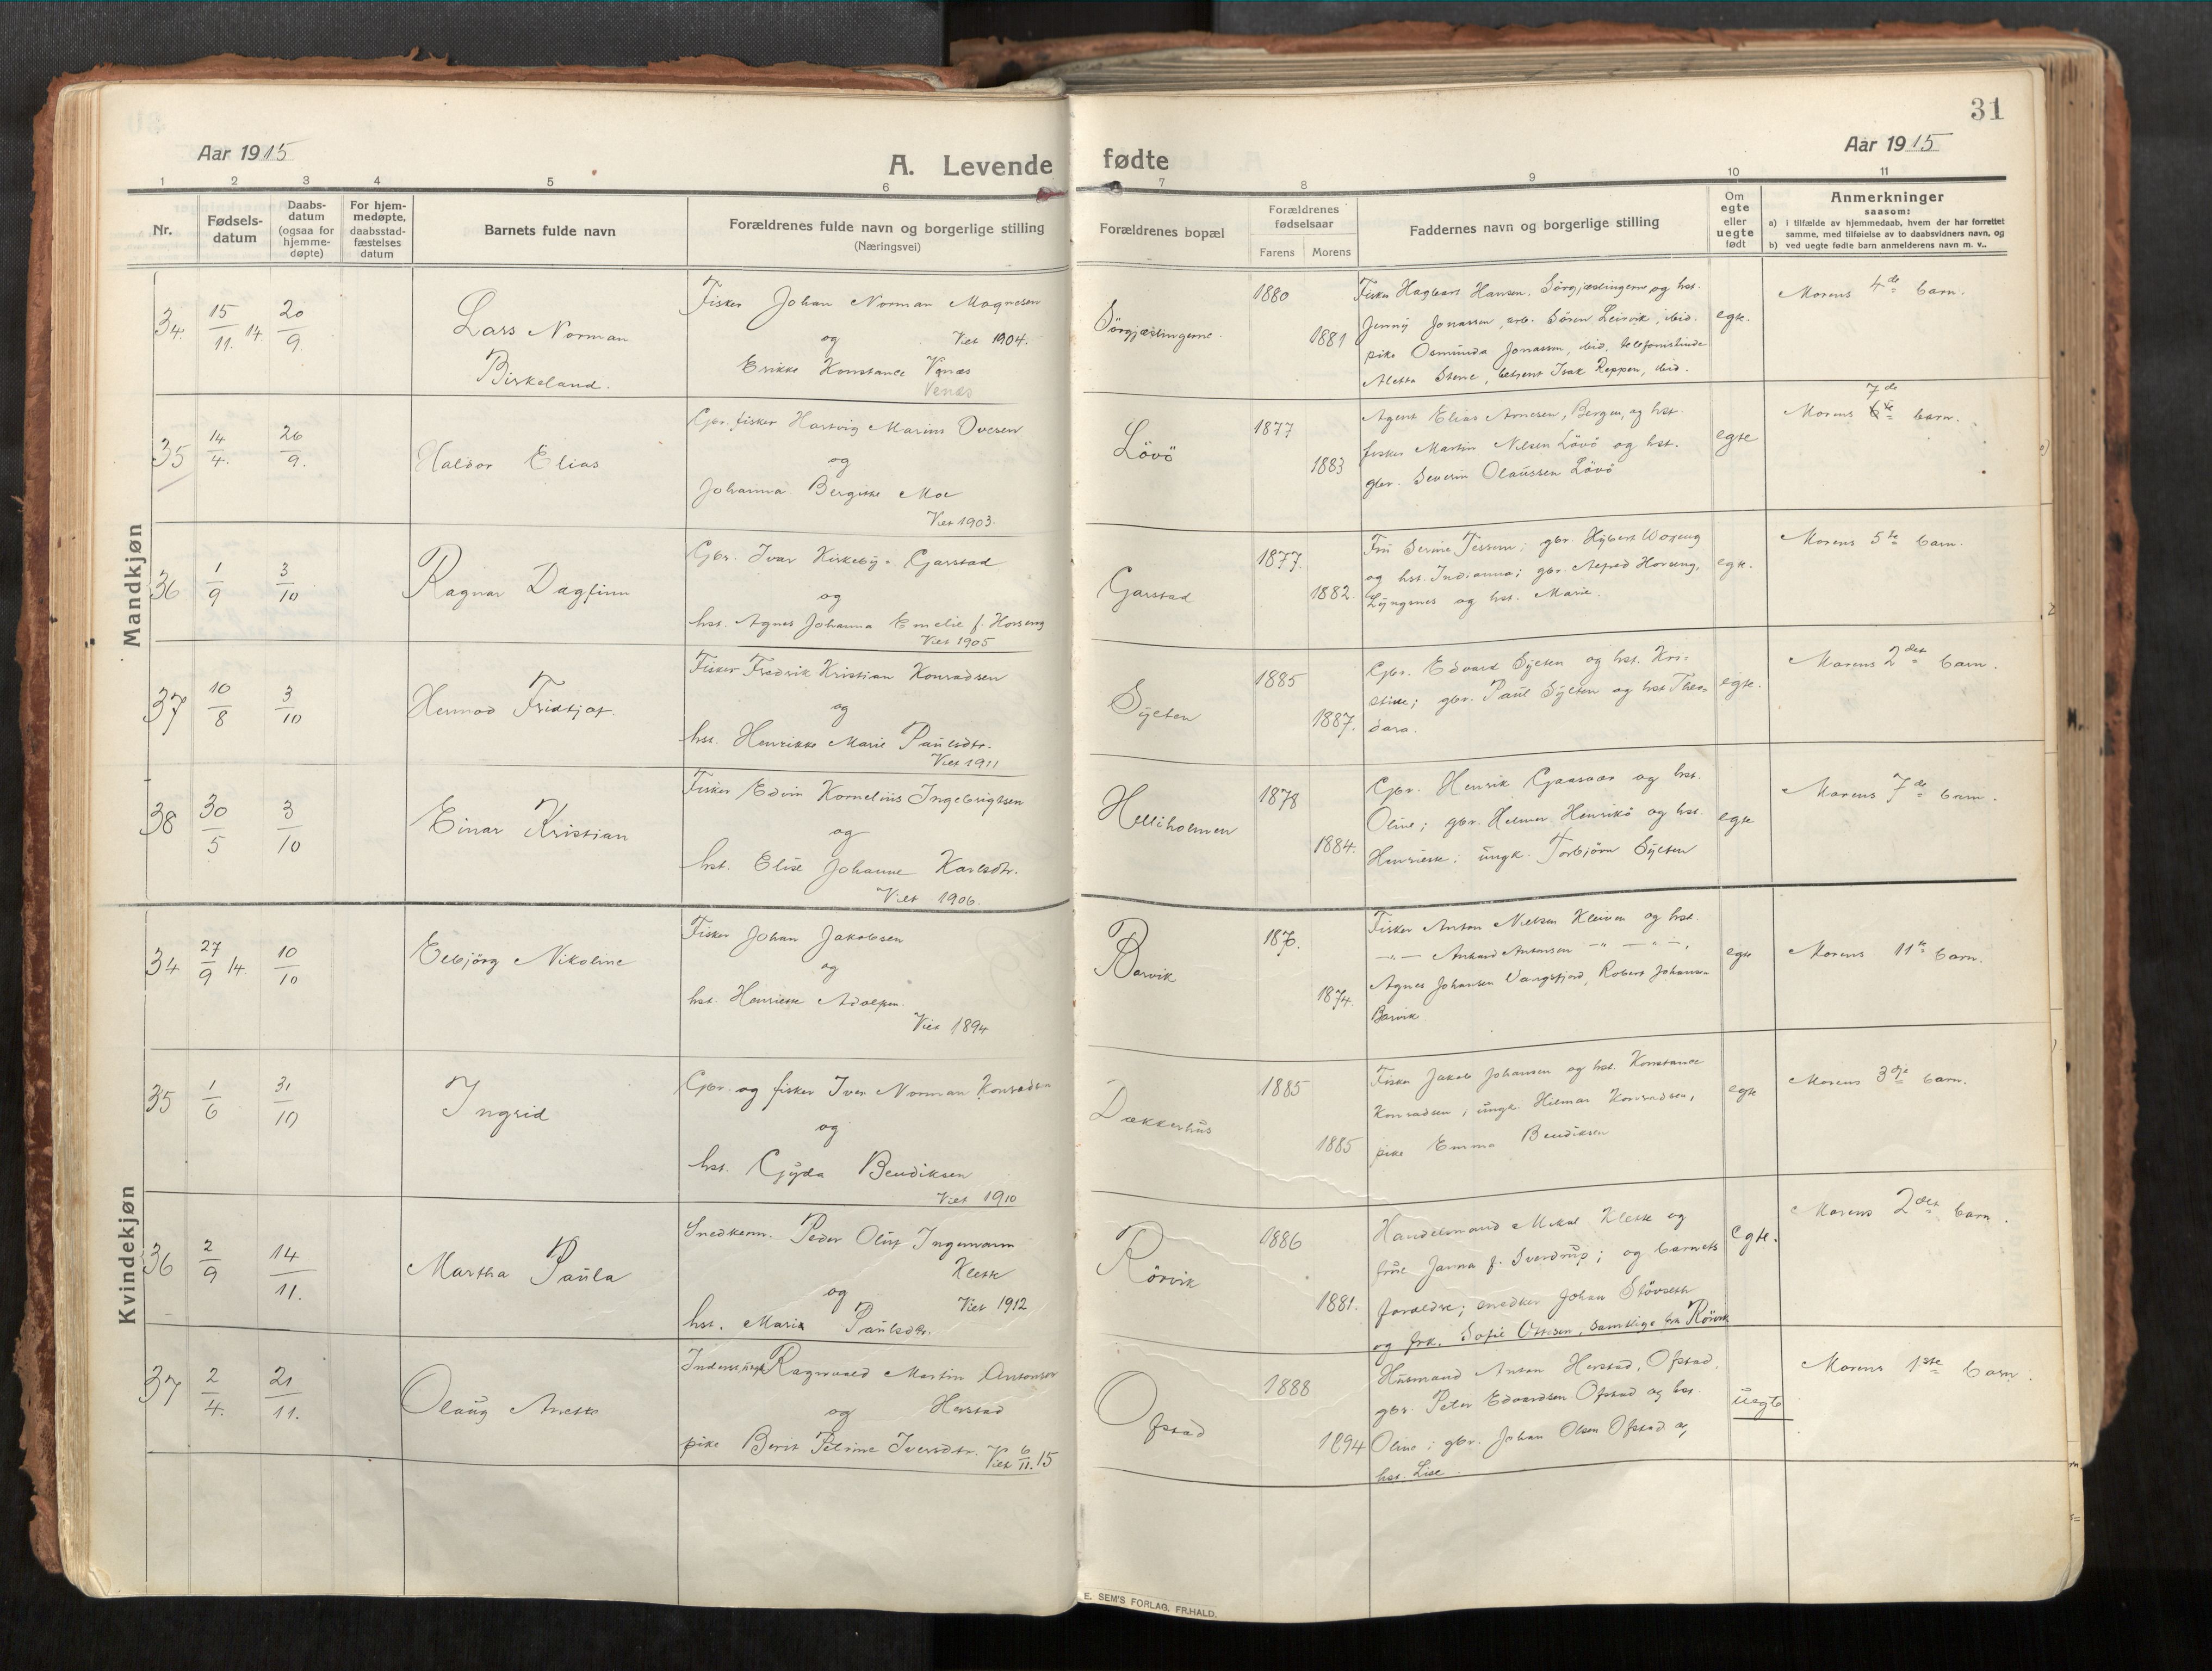 31
Aar 1915
A. Levende fødte
Aar 1915
1 2 3 4 5 6 7 8 9 10 11
Nr.
Fødsels-
datum
Daabs-
datum
(ogsaa for
hjemme-
døpte)
For hjem-
medøpte,
daabsstad-
fæstelses
datum
Barnets fulde navn
Forældrenes fulde navn og borgerlige stilling
(Næringsvei)
Forældrenes bopæl
Forældrenes
fødselsaar
Farens Morens
Faddernes navn og borgerlige stilling
Om
egte
eller
uegte
født
Anmerkninger
saasom:
a) i tilfælde av hjemmedaab, hvem der har forrettet
samme, med tilføielse av to daabsvidners navn, og
b) ved uegte fødte barn anmelderens navn m. v..
Mandkjøn
34. 15/11. 14 20/9.
Lars Norman
Birkeland.
Fisker Johan Norman Magnesen
og Viet 1904.
Erikke Konstance Venæs
Venæs
Sörgjæslingerne.
1880
1881
Fisker Hagbart Hansen, Sörgjæslingerne og hst.
Jenny Jonassen, arb. Sören Leirvik, ibid.
pike Osminda Jonassen, ibid. telefonistinde
Aletta Stene, betjent Isak Reppen, ibid.
egte.
Morens 4de barn.
35 14/4. 26/9.
Haldor Elias
Gbr. fisker Hartvig Marius Ovesen
og
Johanna Bergitte Moe
Viet 1903.
Lövö
1877
1883
Agent Elias Arnesen, Bergen, og hst.
fisker Martin Nilsen Lövö og hst.
gbr. Severin Olaussen Lövö
egte
7de
Morens 6te barn.
36 1/9 3/10
Ragnar Dagfinn
Gbr. Ivar Kirkeby Garstad
og
hst. Agnes Johanna Emelie f. Horseng
Viet 1905
Garstad
1877.
1882.
Fru Serine Jessen; gbr. Hybert Woxeng
og hst. Indianna; gbr. Alfred Horseng,
Lyngsnes og hst. Marie.
egte.
Morens 5te barn.
37 10/8 3/10
Hermod Fridtjof.
Fisker Fredrik Kristian Konradsen
og
hst. Henrikke Marie Paulsdtr.
Viet 1911
Sylten
1885
1887.
Gbr. Edvard Sylten og hst. Kri-
stine; gbr. Paul Sylten og hst Theo-
dora.
egte.
Morens 2det barn.
38 30/5 3/10
Einar Kristian
Fisker Edvin Kornelius Ingebrigtsen
og
hst. Elise Johanne Karlsdtr.
Viet 1906.
Helliholmen
1878
1884.
Gbr. Henrik Gaasvær og hst.
Oline; gbr. Helmer Henrikö og hst.
Henriette; ungk. Torbjörn Sylten
egte
Morens 7de barn.
Kvindekjøn
34 27/9 14. 10/10
Eibjörg Nikoline
Fisker Johan Jakobsen
og
hst. Henriette Adolfsen.
Viet 1894
Barvik
187.
1874.
Fisker Anton Nielsen Kleiven og hst.
Antonsen
Agnes Johansen Vangsfjord, Robert Johansen
Barvik
egte
Morens 11te barn.
35 1/6 31/10
Ingrid
Gbr. og fisker Iver Norman Konradsen
og
hst. Gyda Bendiksen
Viet 1910
Dækkerhus
1885
1885
Fisker Jakob Johansen og hst. Konstance
Konradsen, ungk. Hilmar Konradsen,
pike Emma Bendiksen
egte
Morens 3dje barn.
36 2/9 14/11.
Martha Paula
Snedkerm. Peder Oluf Ingemann
Klette
og Viet 1912
hst. Marie Paulsdtr.
Rörvik
1886
1881.
Handelsmand Mikal Klette og
frue Janna f. Sverdrup; og barnets
forældre; snedker Johan Stövseth
og frk. Sofie Ottesen, samtlige fra Rörvik
egte.
Morens 2det barn.
37 2/4. 21/11.
Olaug Anette
Ragnvald Martin Antonsen
og Herstad
pike Berit Peline Iversdtr. Viet 6/11.15
Ofstad
1888
1894
Husmand Anton Herstad, Ofstad,
gbr. Peter Edvardsen Ofstad og hst.
Oline; gbr. Johan Olsen Ofstad og
hst. Lise.
uegte
Morens 1ste barn.
E. SEM'S FORLAG, FR.HALD.